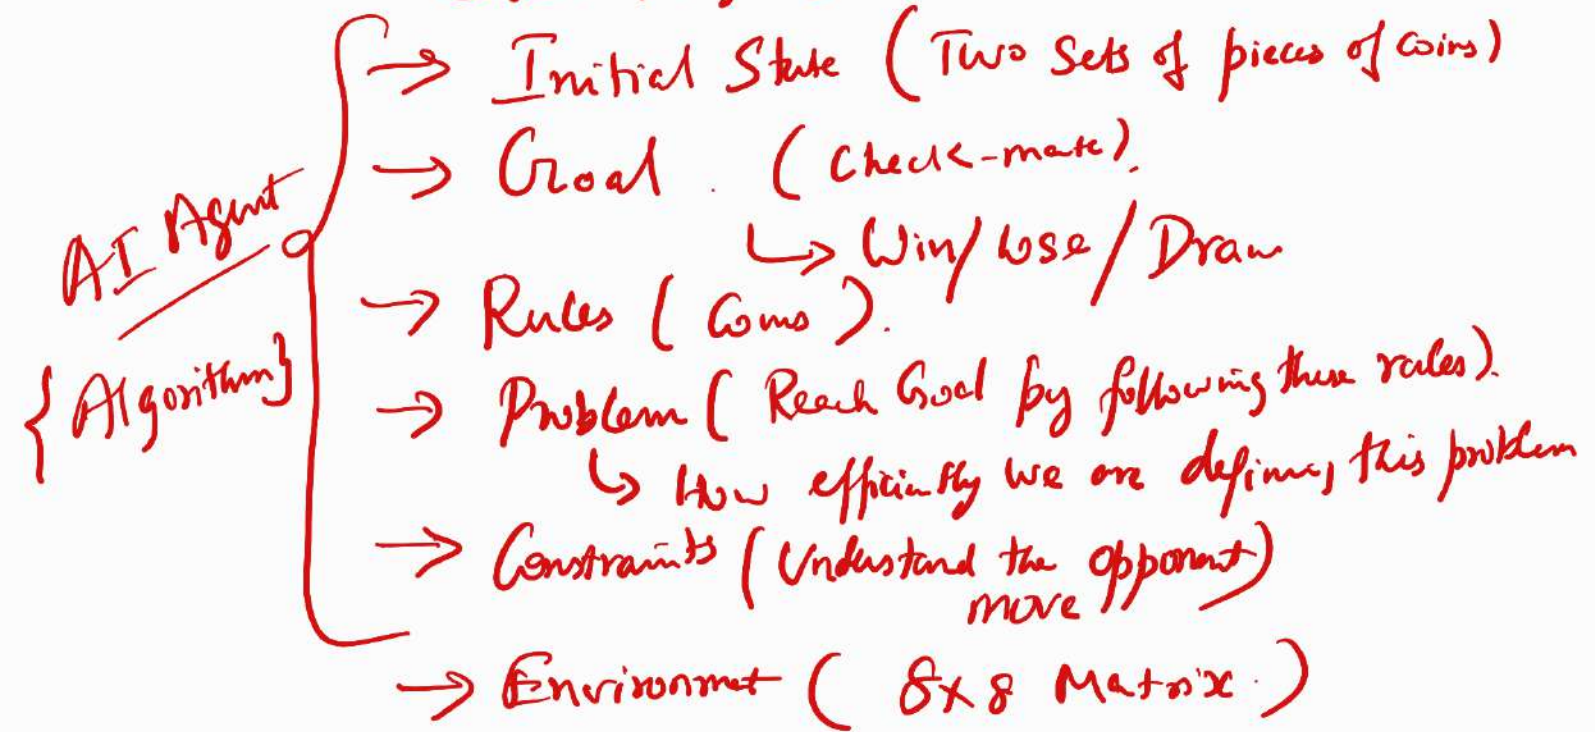 → Initial State (Two Sets of pieces of coins)
→ Goal. (Check-mate).
↳ Win/Lose/Draw
AI Agent
→ Rules (Coins).
{Algorithm}
→ Problem (Reach Goal by following these rules).
↳ How efficiently we are defining this problem
→ Constraints (Understand the opponent
move)
→ Environmet (8x8 Matrix.)